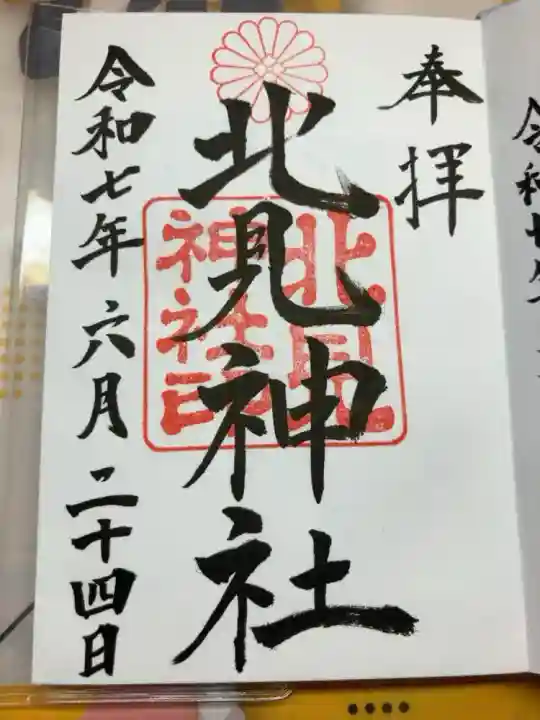 奉拝
北見神社
北見神社印
令和七年六月二十四日
令和七年